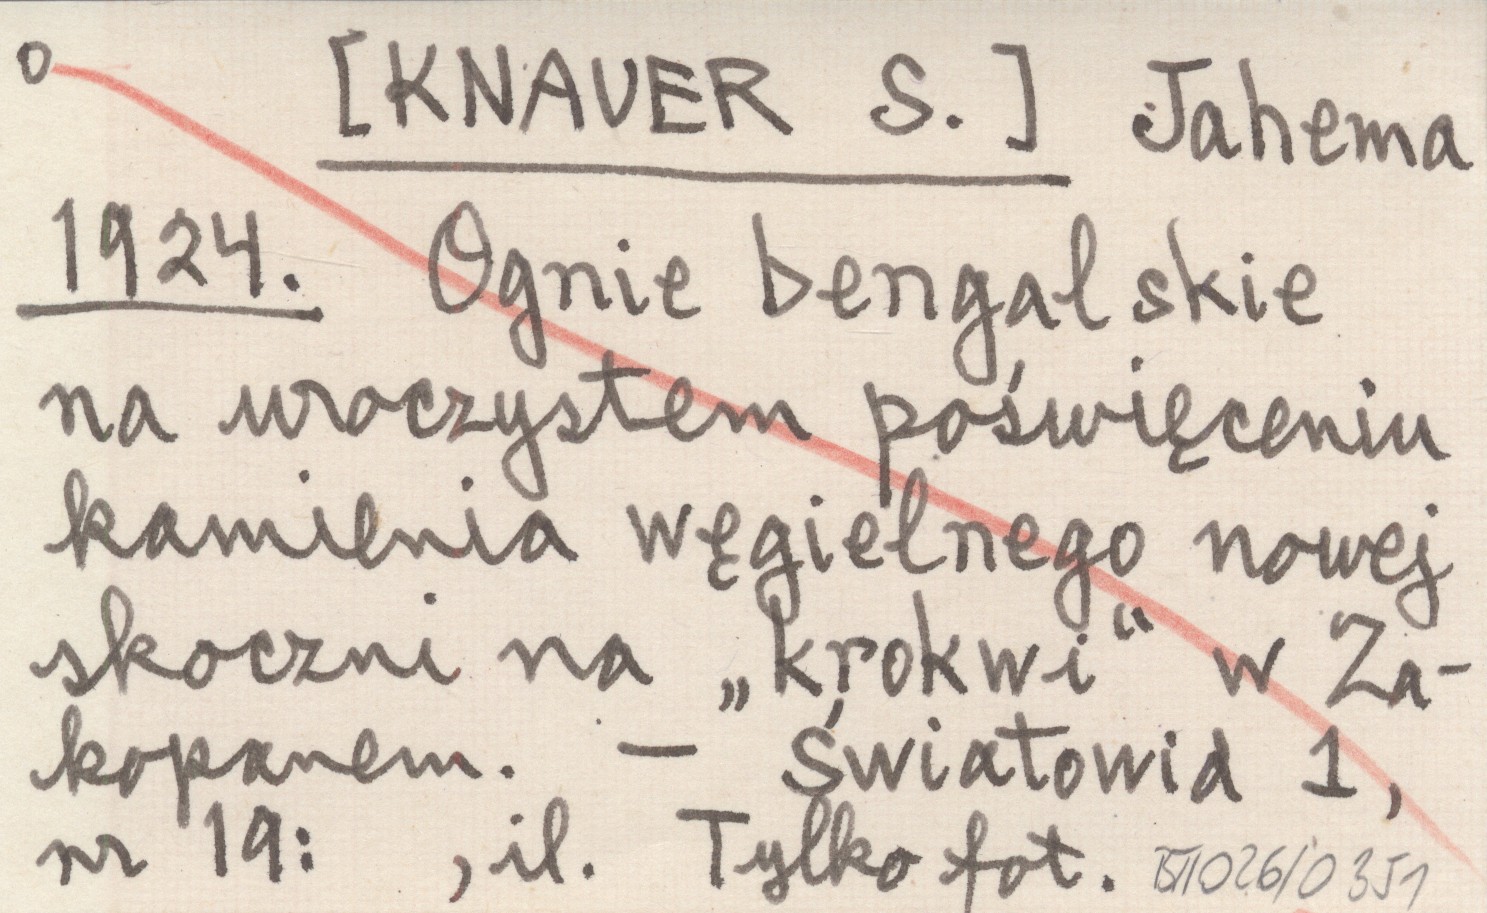 o [KNAUER S.] Jahema
1924. Ognie bengalskie
na uroczystem poświęceniu
kamienia węgielnego nowej
skoczni na „krokwi“ w Za-
kopanem. — Światowid 1,
nr 19: , il. Tylko fot. 026/0351